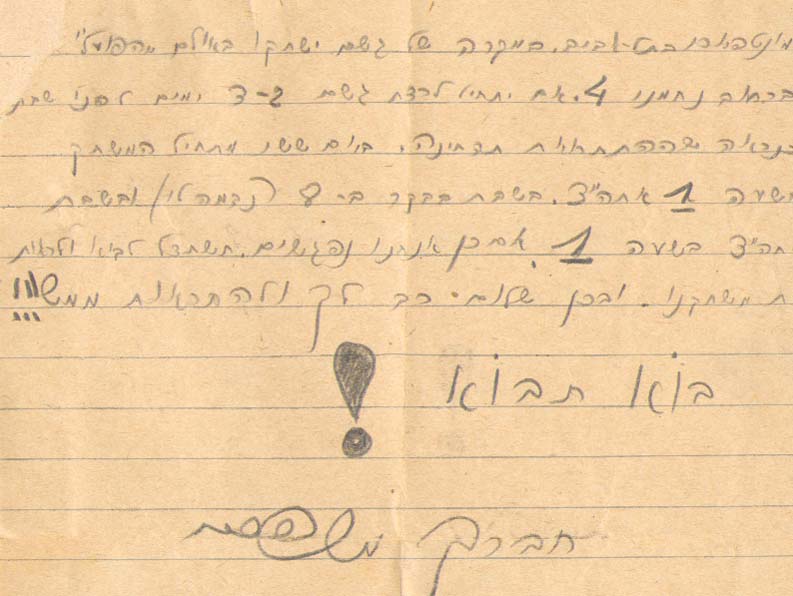 מונטפיורי בתל-אביב. במקרה של גשם ישחקו באולם "הפועל"
ברחוב נחמני 4. אם יתחיל לרדת גשם 2-3 ימים לפני שבת
כנראה שההתחרות תדחינה. ביום ששי מתחיל המשחק
בשעה 1 אחה"צ. בשבת בבקר ב-8 ובשבת
אחה"צ בשעה 1 אנחנו נפגשים. תשתדל לבוא ולראות
את משחקנו. ובכן שלום רב לך ולהתראות ממש!!!
בוֹא תבוֹא!
חברך